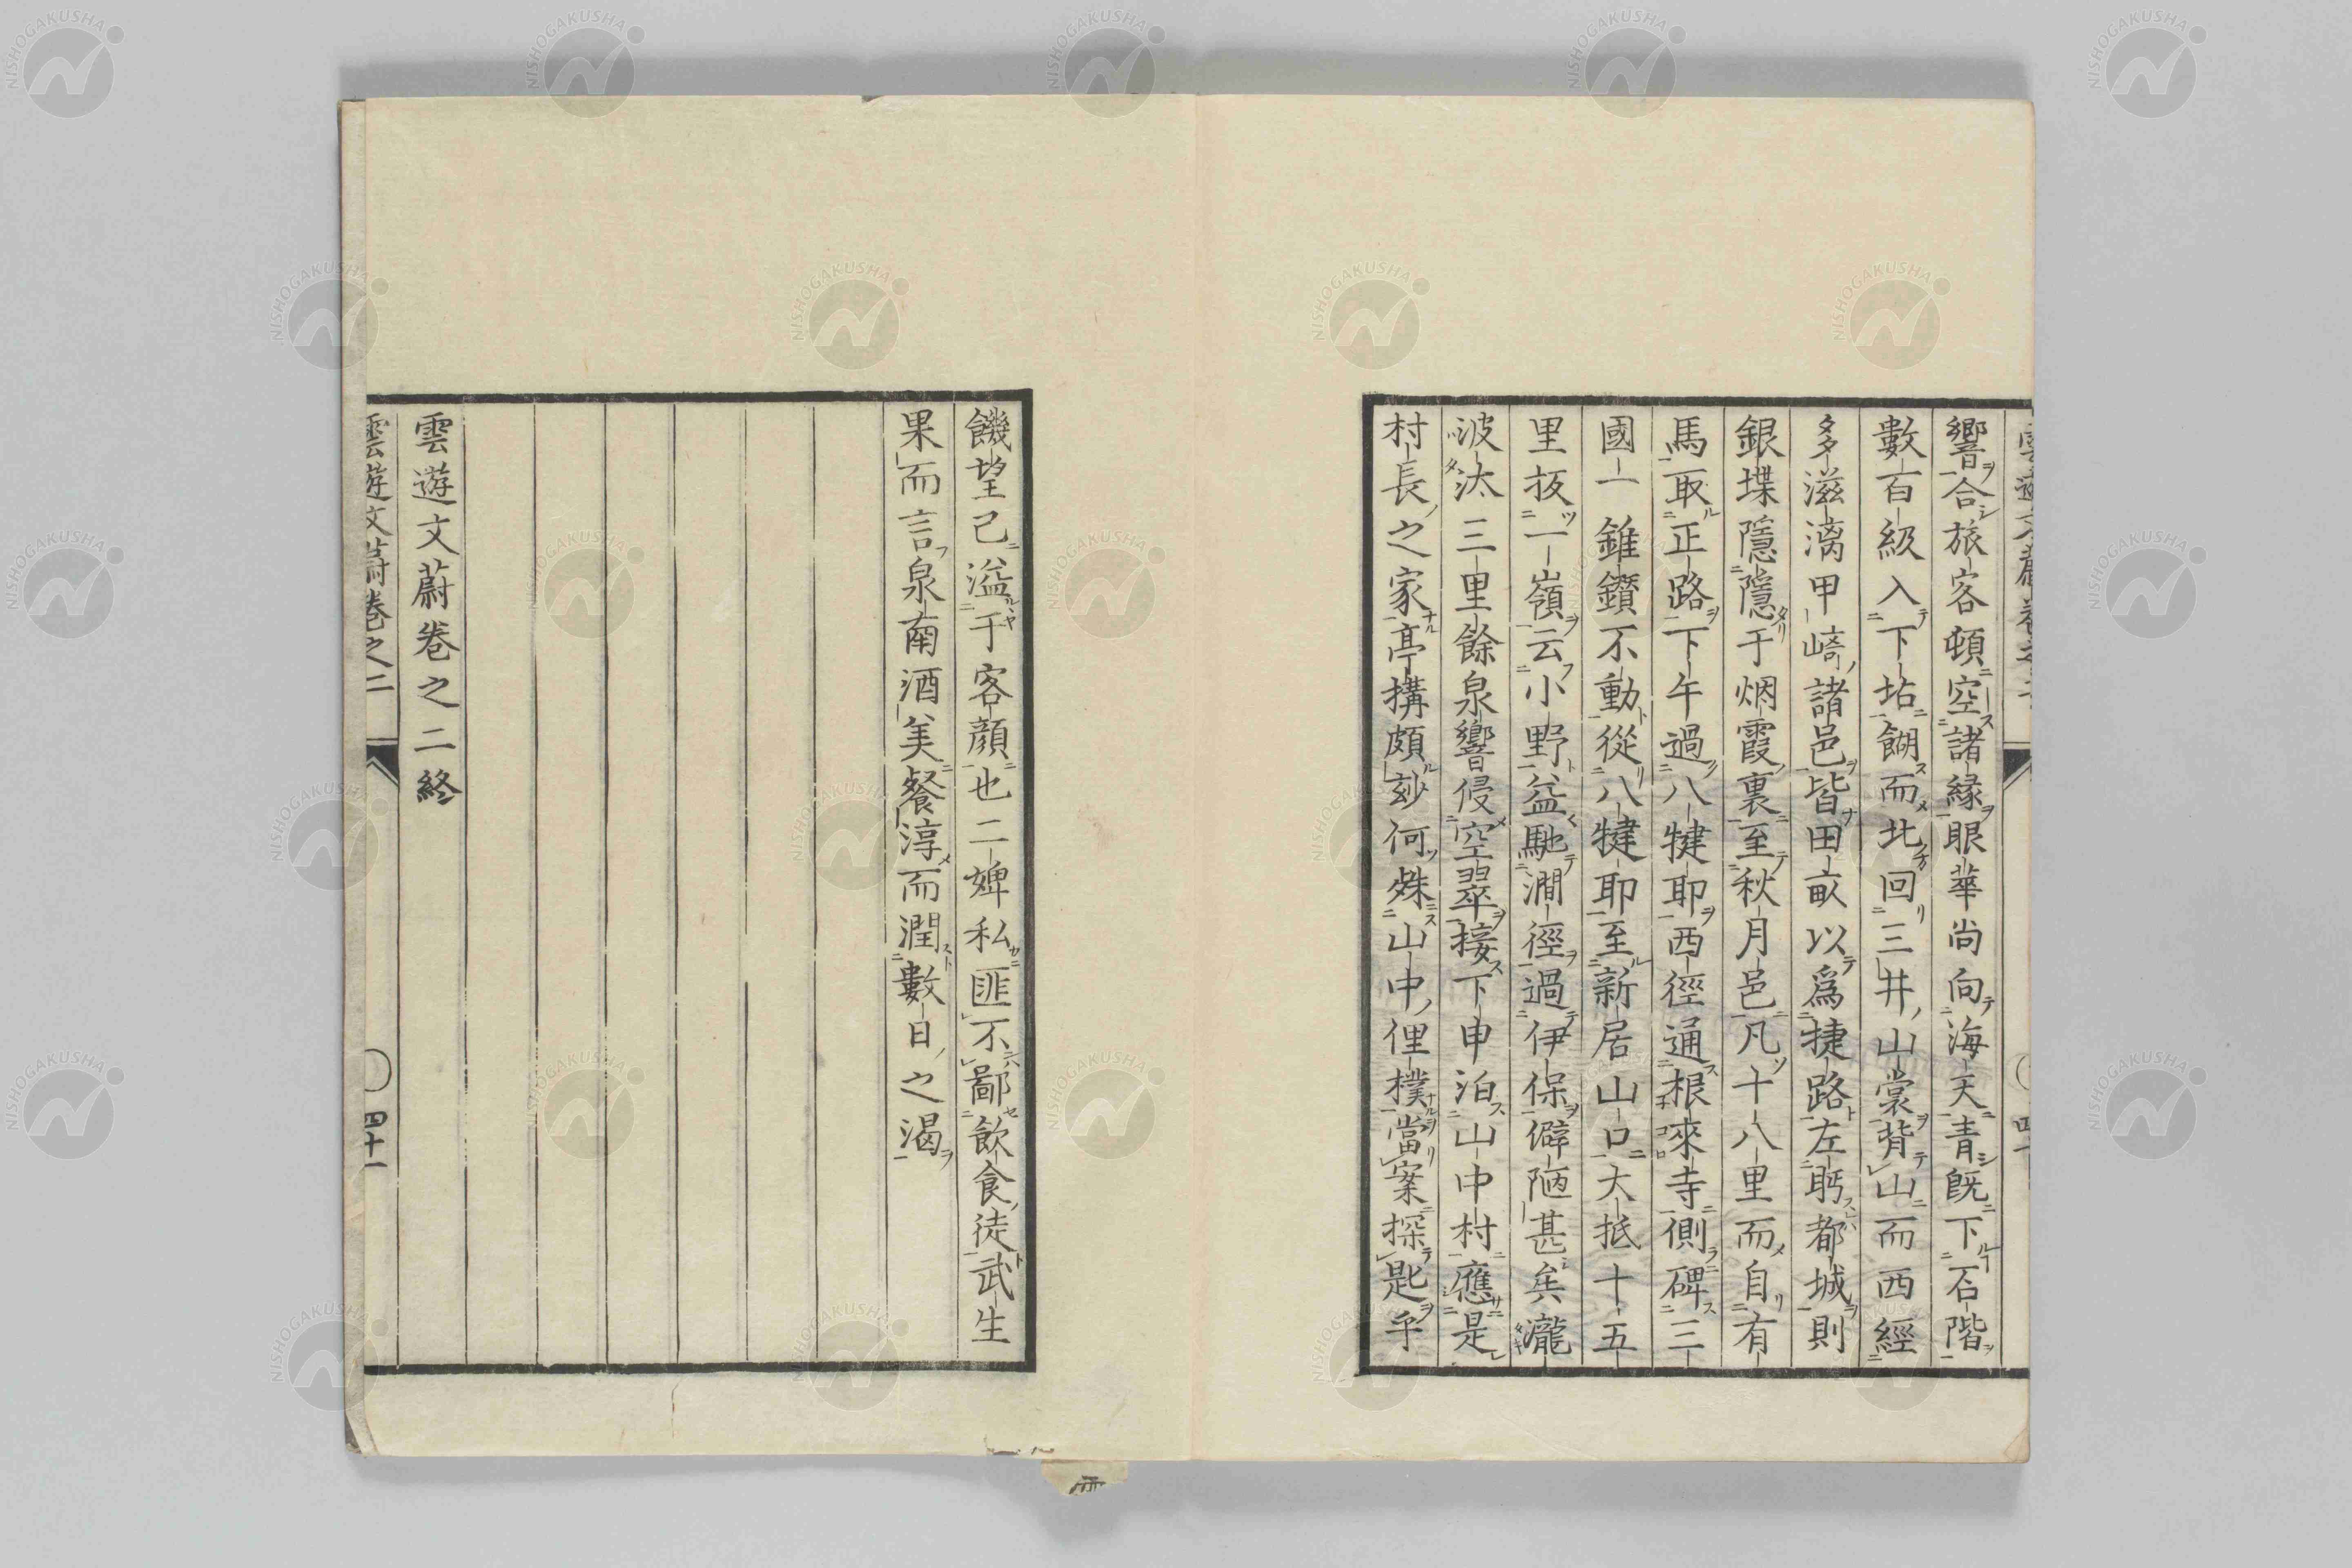 響合旅客頓空諸縁眼華尚向海天青既下石階
數百級入下坫餬而北回三井山裳背山而西經
多滋漓甲﨑諸邑皆田畝以爲捷路左眄都城則
銀堞隱隱于烟霞裏至秋月邑凡十八里而自有
馬取正路下午過八犍耶西徑通根來寺側碑三
國一錐鑽不動從八犍耶至新居山口大抵十五
里扳一嶺云小野益馳澗徑過伊保僻陋甚矣瀧
波汰三里餘泉響侵空翠接下申泊山中村應是
村長之家亭搆頗玅何姝山中俚樸當案探匙乎
饑望已溢于客顏也二婢私匪不鄙飲食徒武生
果而言泉南酒美餐淳而潤數日之渴
雲遊文蔚卷之二終
雲遊文蔚卷之二
四十一
NISHOGAKUSHA